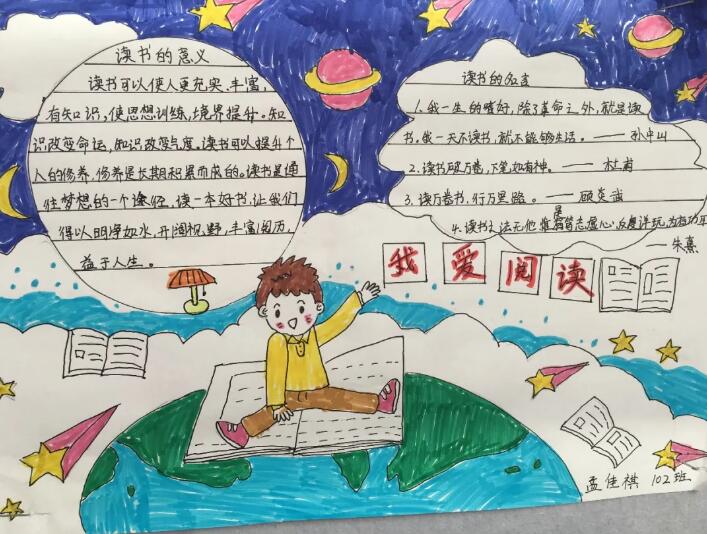 读书的意义
读书可以使人更充实,丰富,
有知识,使思想训练,境界提升。知
识改变命运,知识改变气度。读书可以提升个
人的修养,修养是长期积累而成的。读书是通
往梦想的一个途径,读一本好书,让我们
得以明净如水,开阔视野,丰富阅历,
益于人生。
读书的名言
1.我一生的嗜好,除了革命之外,就是读
书。我一天不读书,就不能够生活。——孙中山
2.读书破万卷,下笔如有神。——杜甫
3.读万卷书,行万里路。——顾炎武
4.读书之法无他,惟是笃志虚心,反复详玩,为有功耳
——朱熹
我爱阅读
孟佳祺 102班